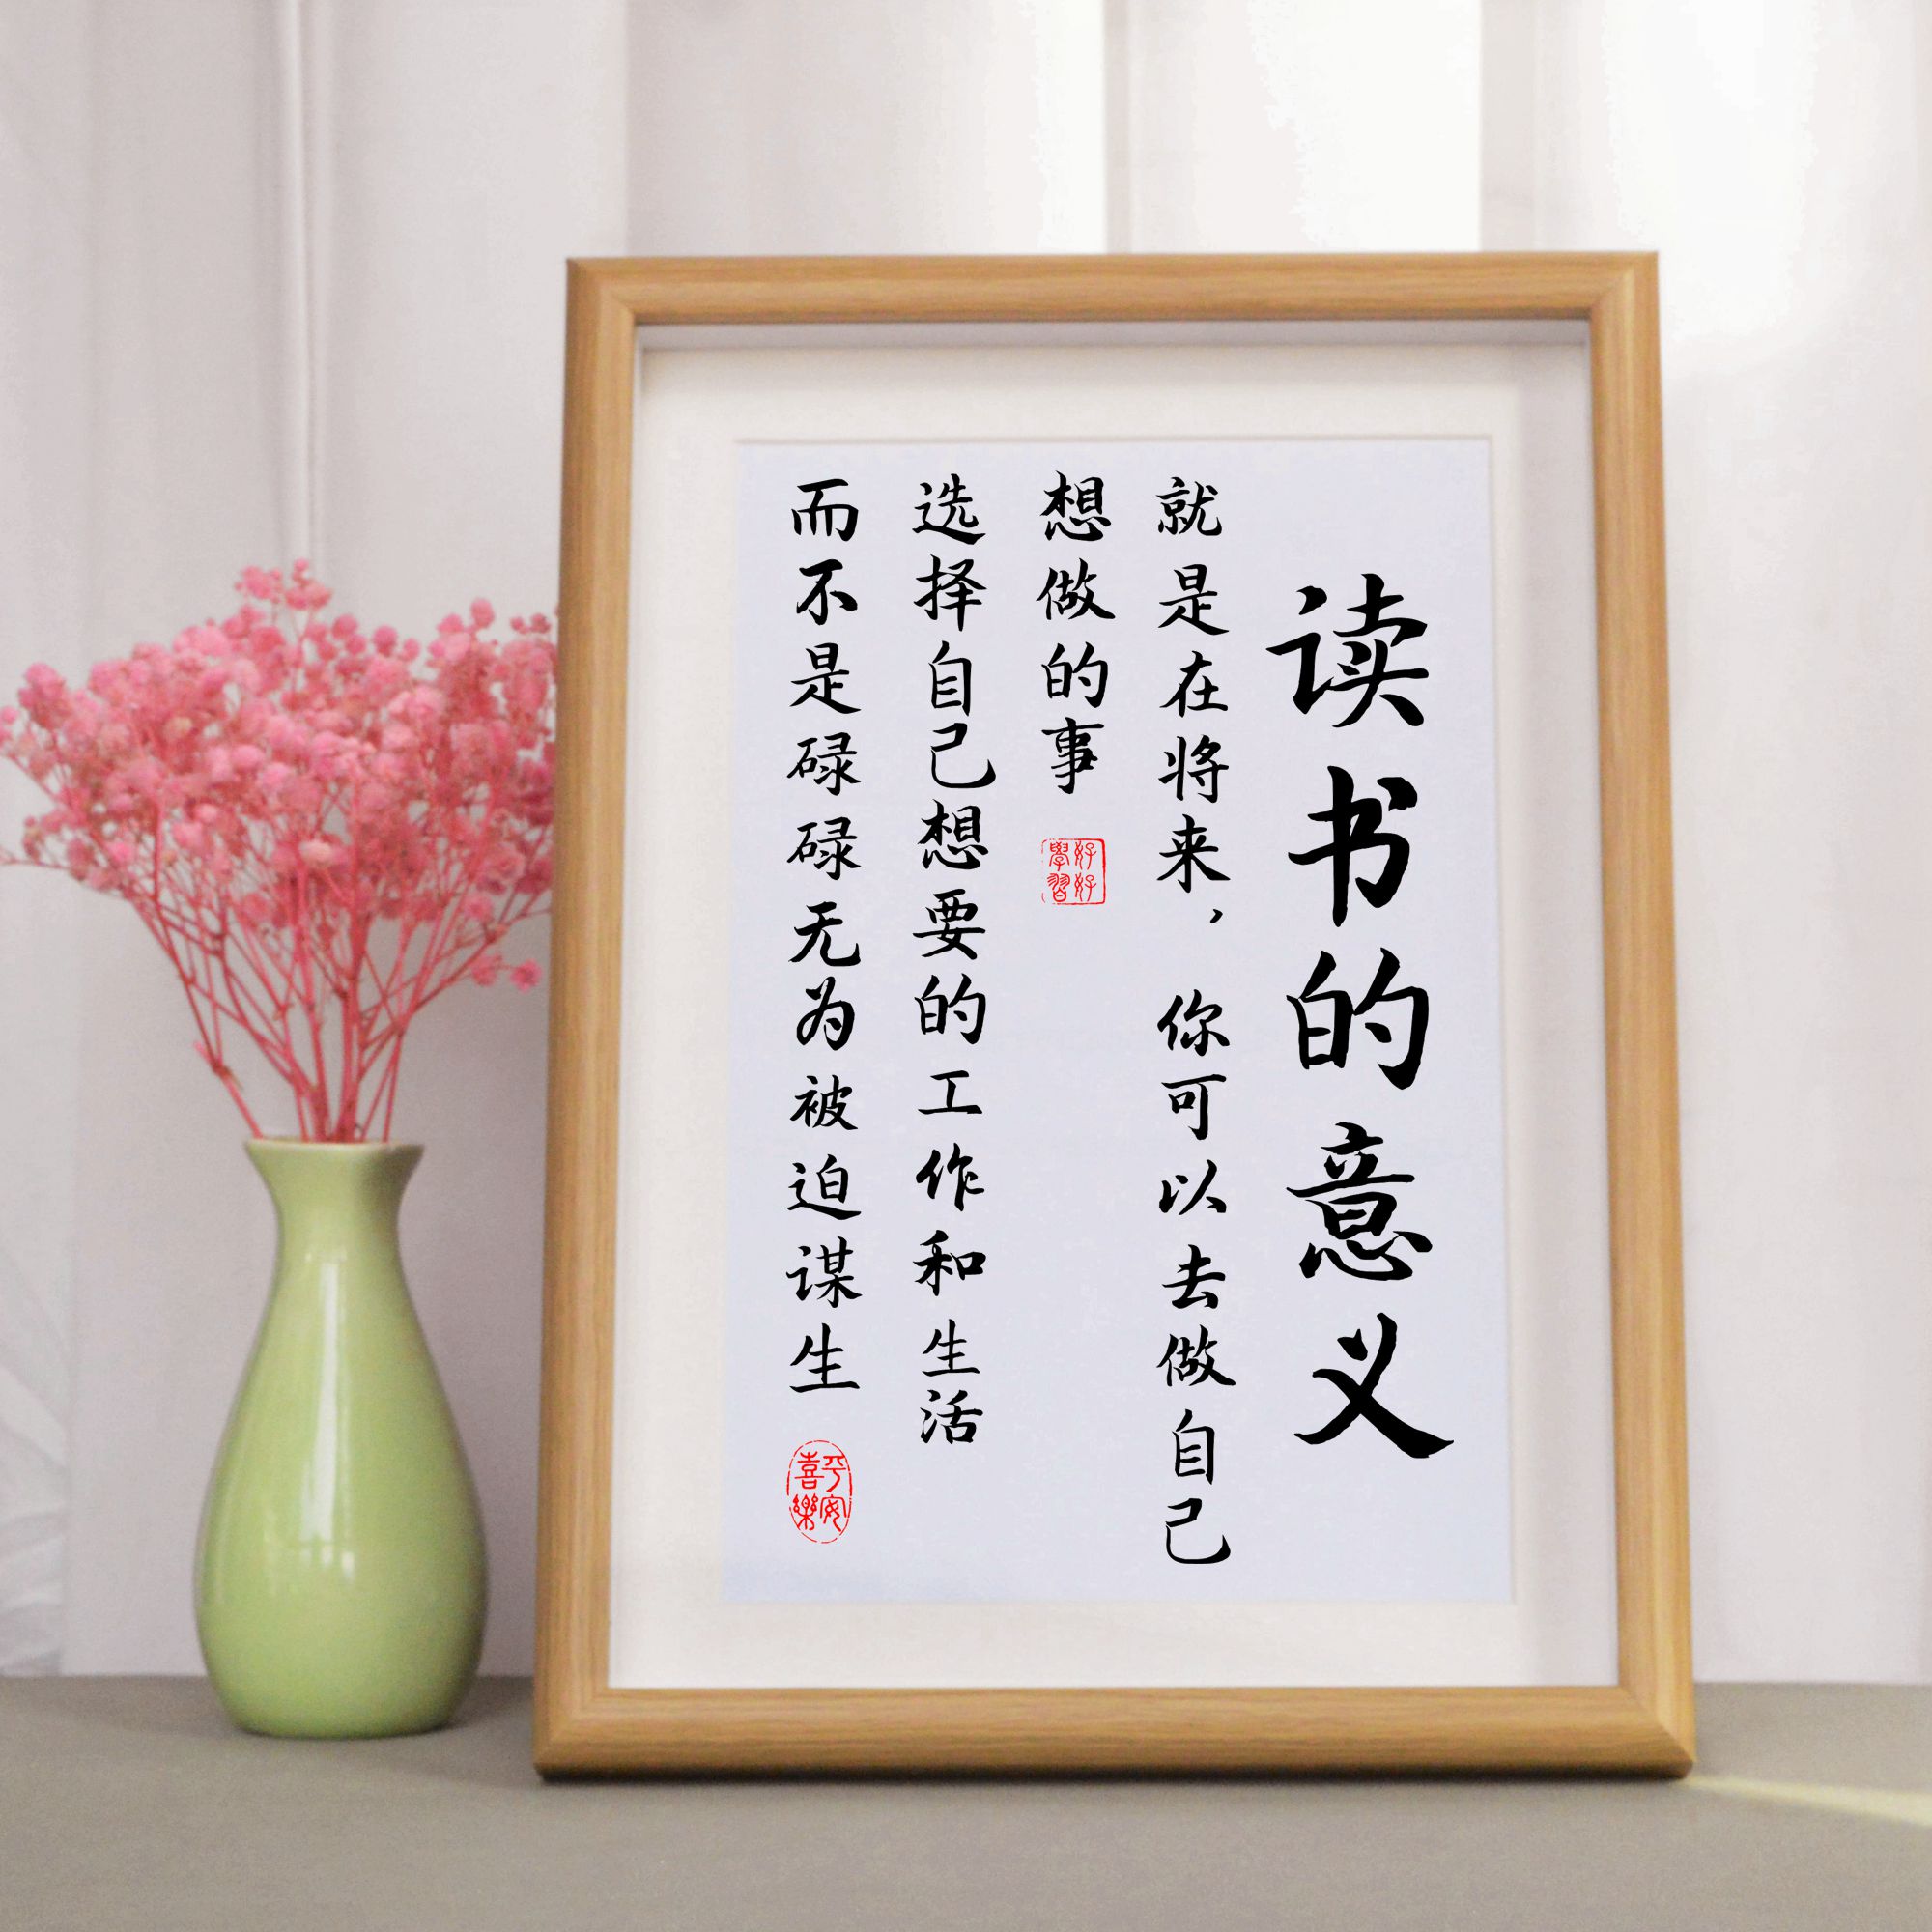 读书的意义
就是在将来，你可以去做自己
想做的事
好好
學習
选择自己想要的工作和生活
而不是碌碌无为被迫谋生
平安
喜樂